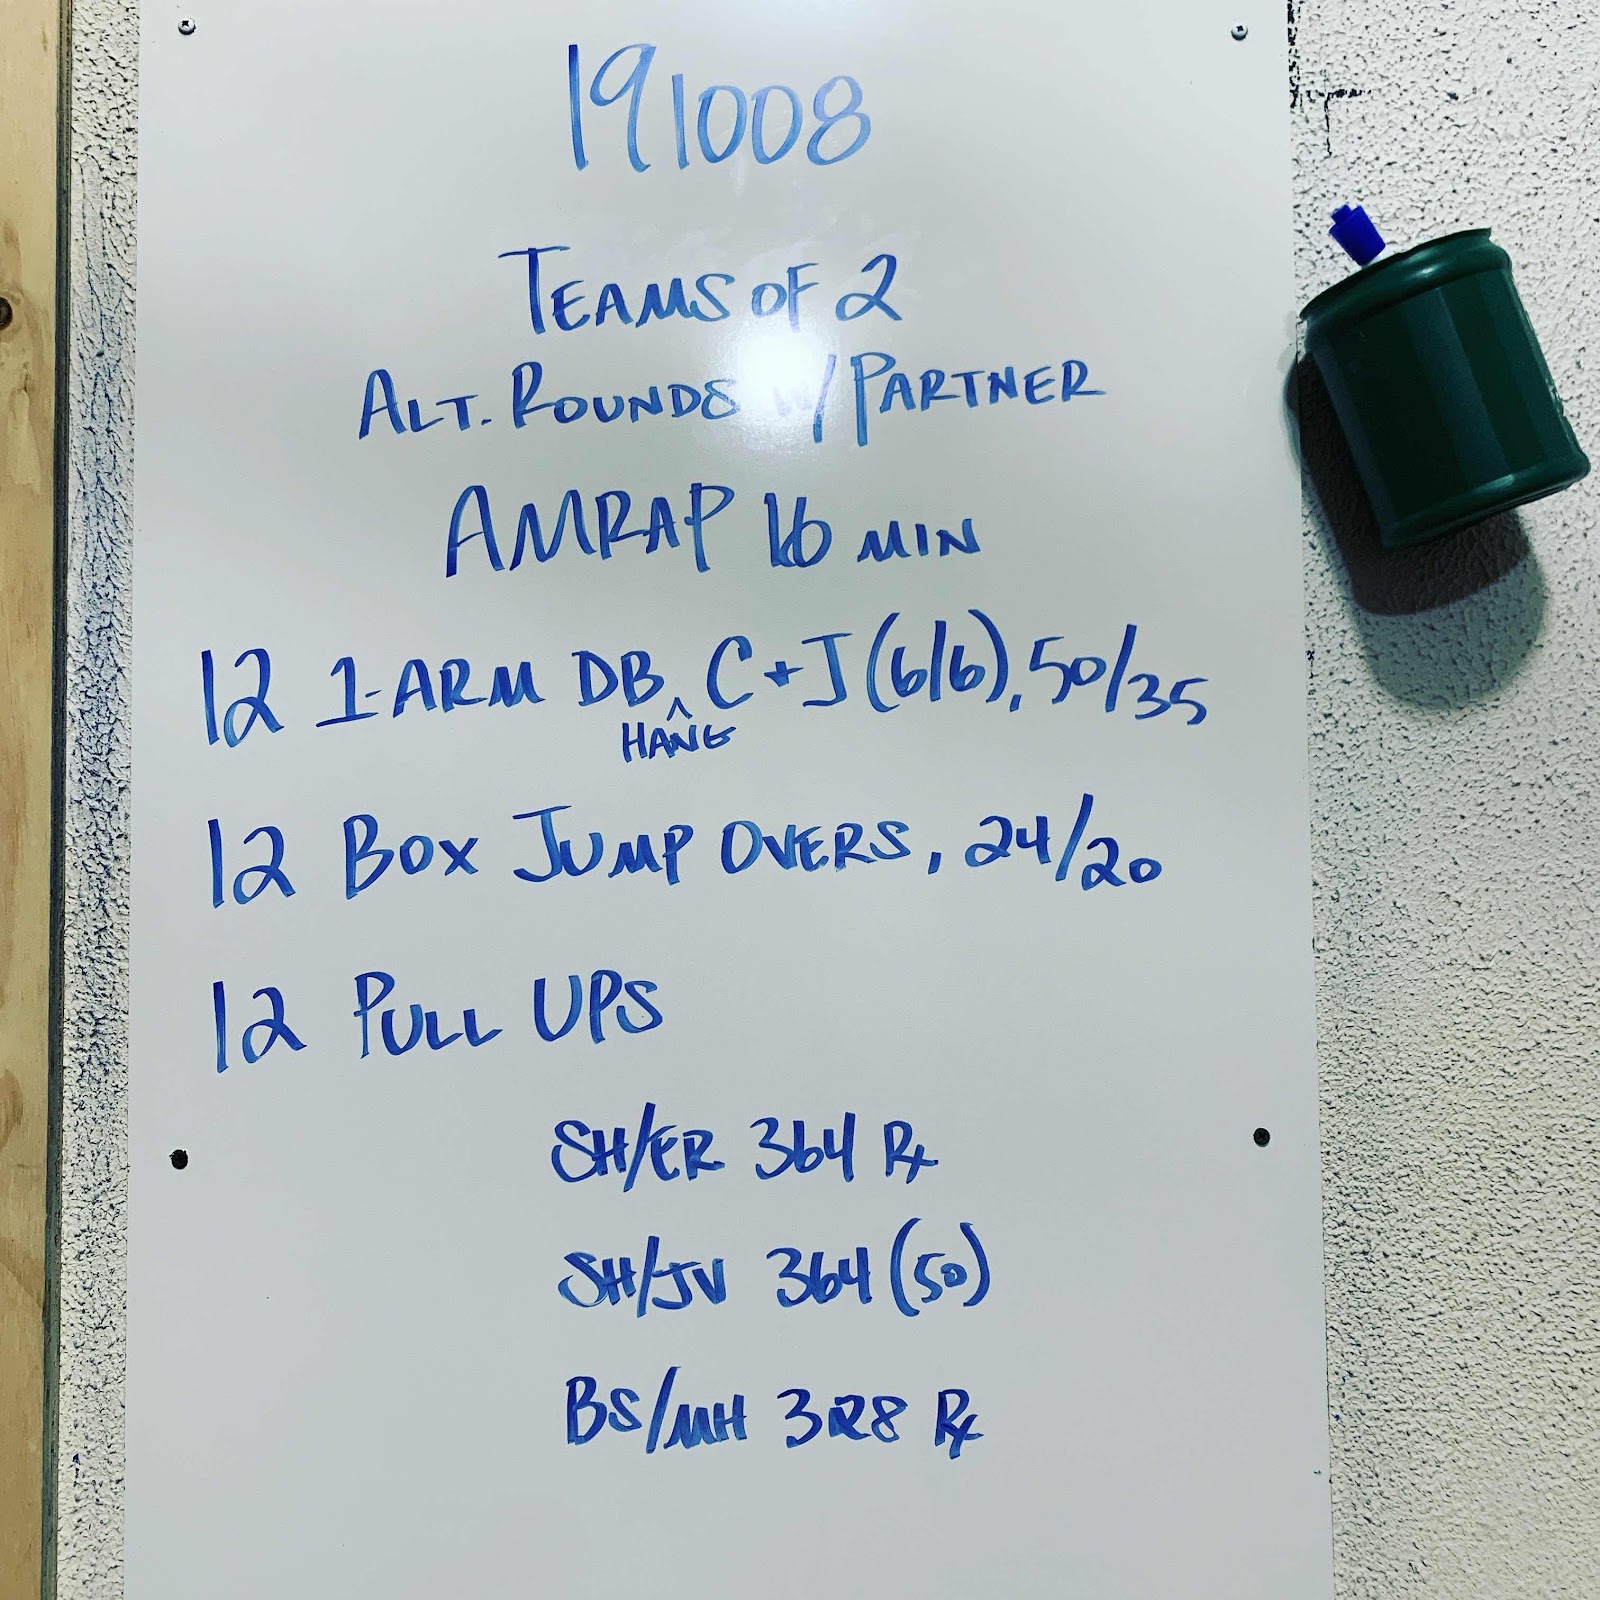 191008
TEAMS OF 2
ALT. ROUNDS W/ PARTNER
AMRAP 16 MIN
12 1-ARM DB ^ C+J (6/6), 50/35
HANG
12 BOX JUMP OVERS, 24/20
12 PULL UPS
SH/ER 364 Rx
SH/JV 364 (50)
BS/MH 328 Rx